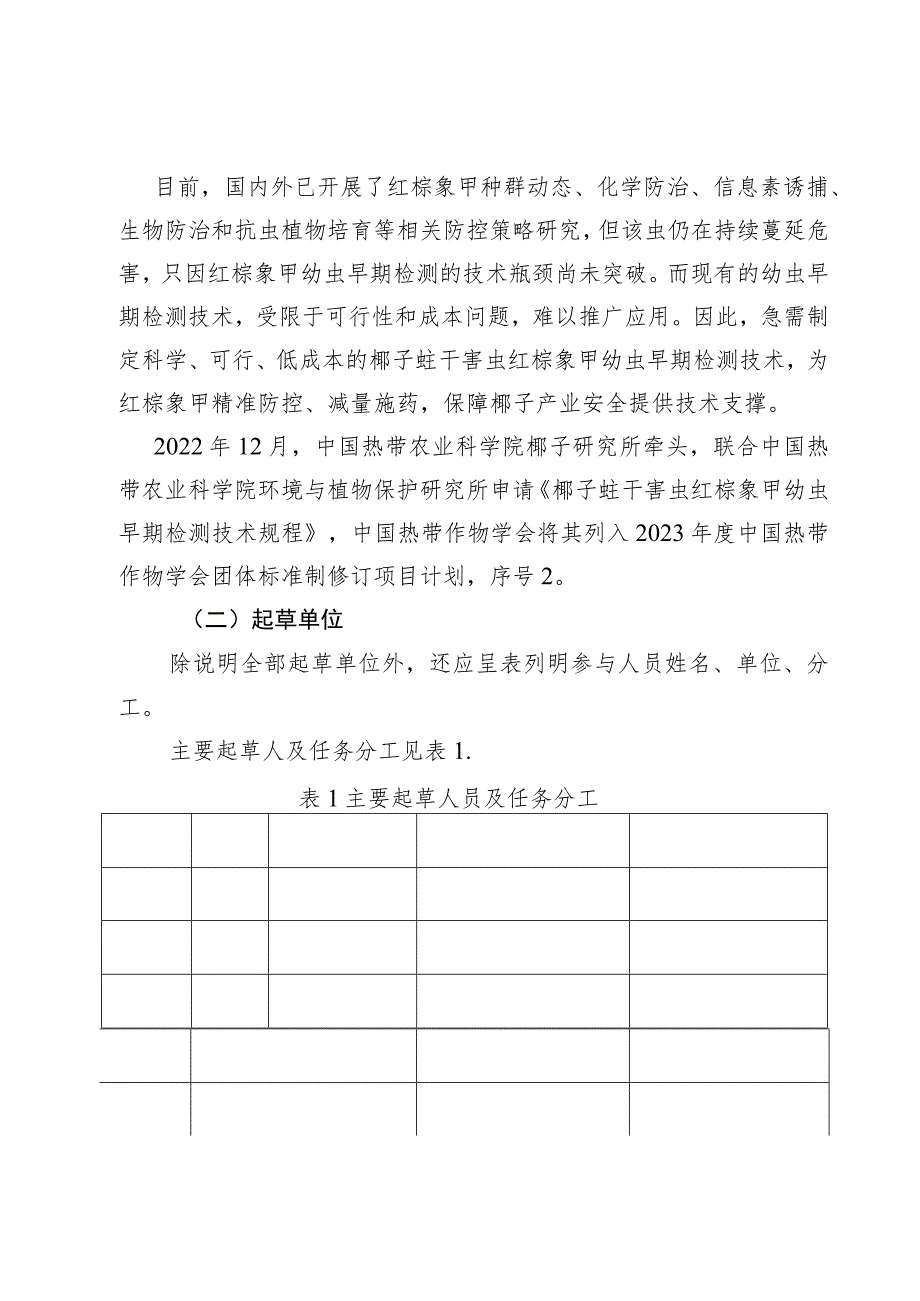 目前，国内外已开展了红棕象甲种群动态、化学防治、信息素诱捕、
生物防治和抗虫植物培育等相关防控策略研究，但该虫仍在持续蔓延危
害，只因红棕象甲幼虫早期检测的技术瓶颈尚未突破。而现有的幼虫早
期检测技术，受限于可行性和成本问题，难以推广应用。因此，急需制
定科学、可行、低成本的椰子蛀干害虫红棕象甲幼虫早期检测技术，为
红棕象甲精准防控、减量施药，保障椰子产业安全提供技术支撑。
2022 年 12 月，中国热带农业科学院椰子研究所牵头，联合中国热
带农业科学院环境与植物保护研究所申请《椰子蛀干害虫红棕象甲幼虫
早期检测技术规程》，中国热带作物学会将其列入 2023 年度中国热带
作物学会团体标准制修订项目计划，序号 2。
（二）起草单位
除说明全部起草单位外，还应呈表列明参与人员姓名、单位、分
工。
主要起草人及任务分工见表 1.
表 1 主要起草人员及任务分工